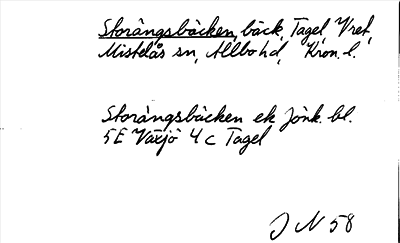 Storängsbäcken, bäck, Tagel, Vret,
Mistelås sn, Allbo hd, Kron. l.
Storängsbäcken ek Jönk. bl.
5E Växjö 4c Tagel
J N 58